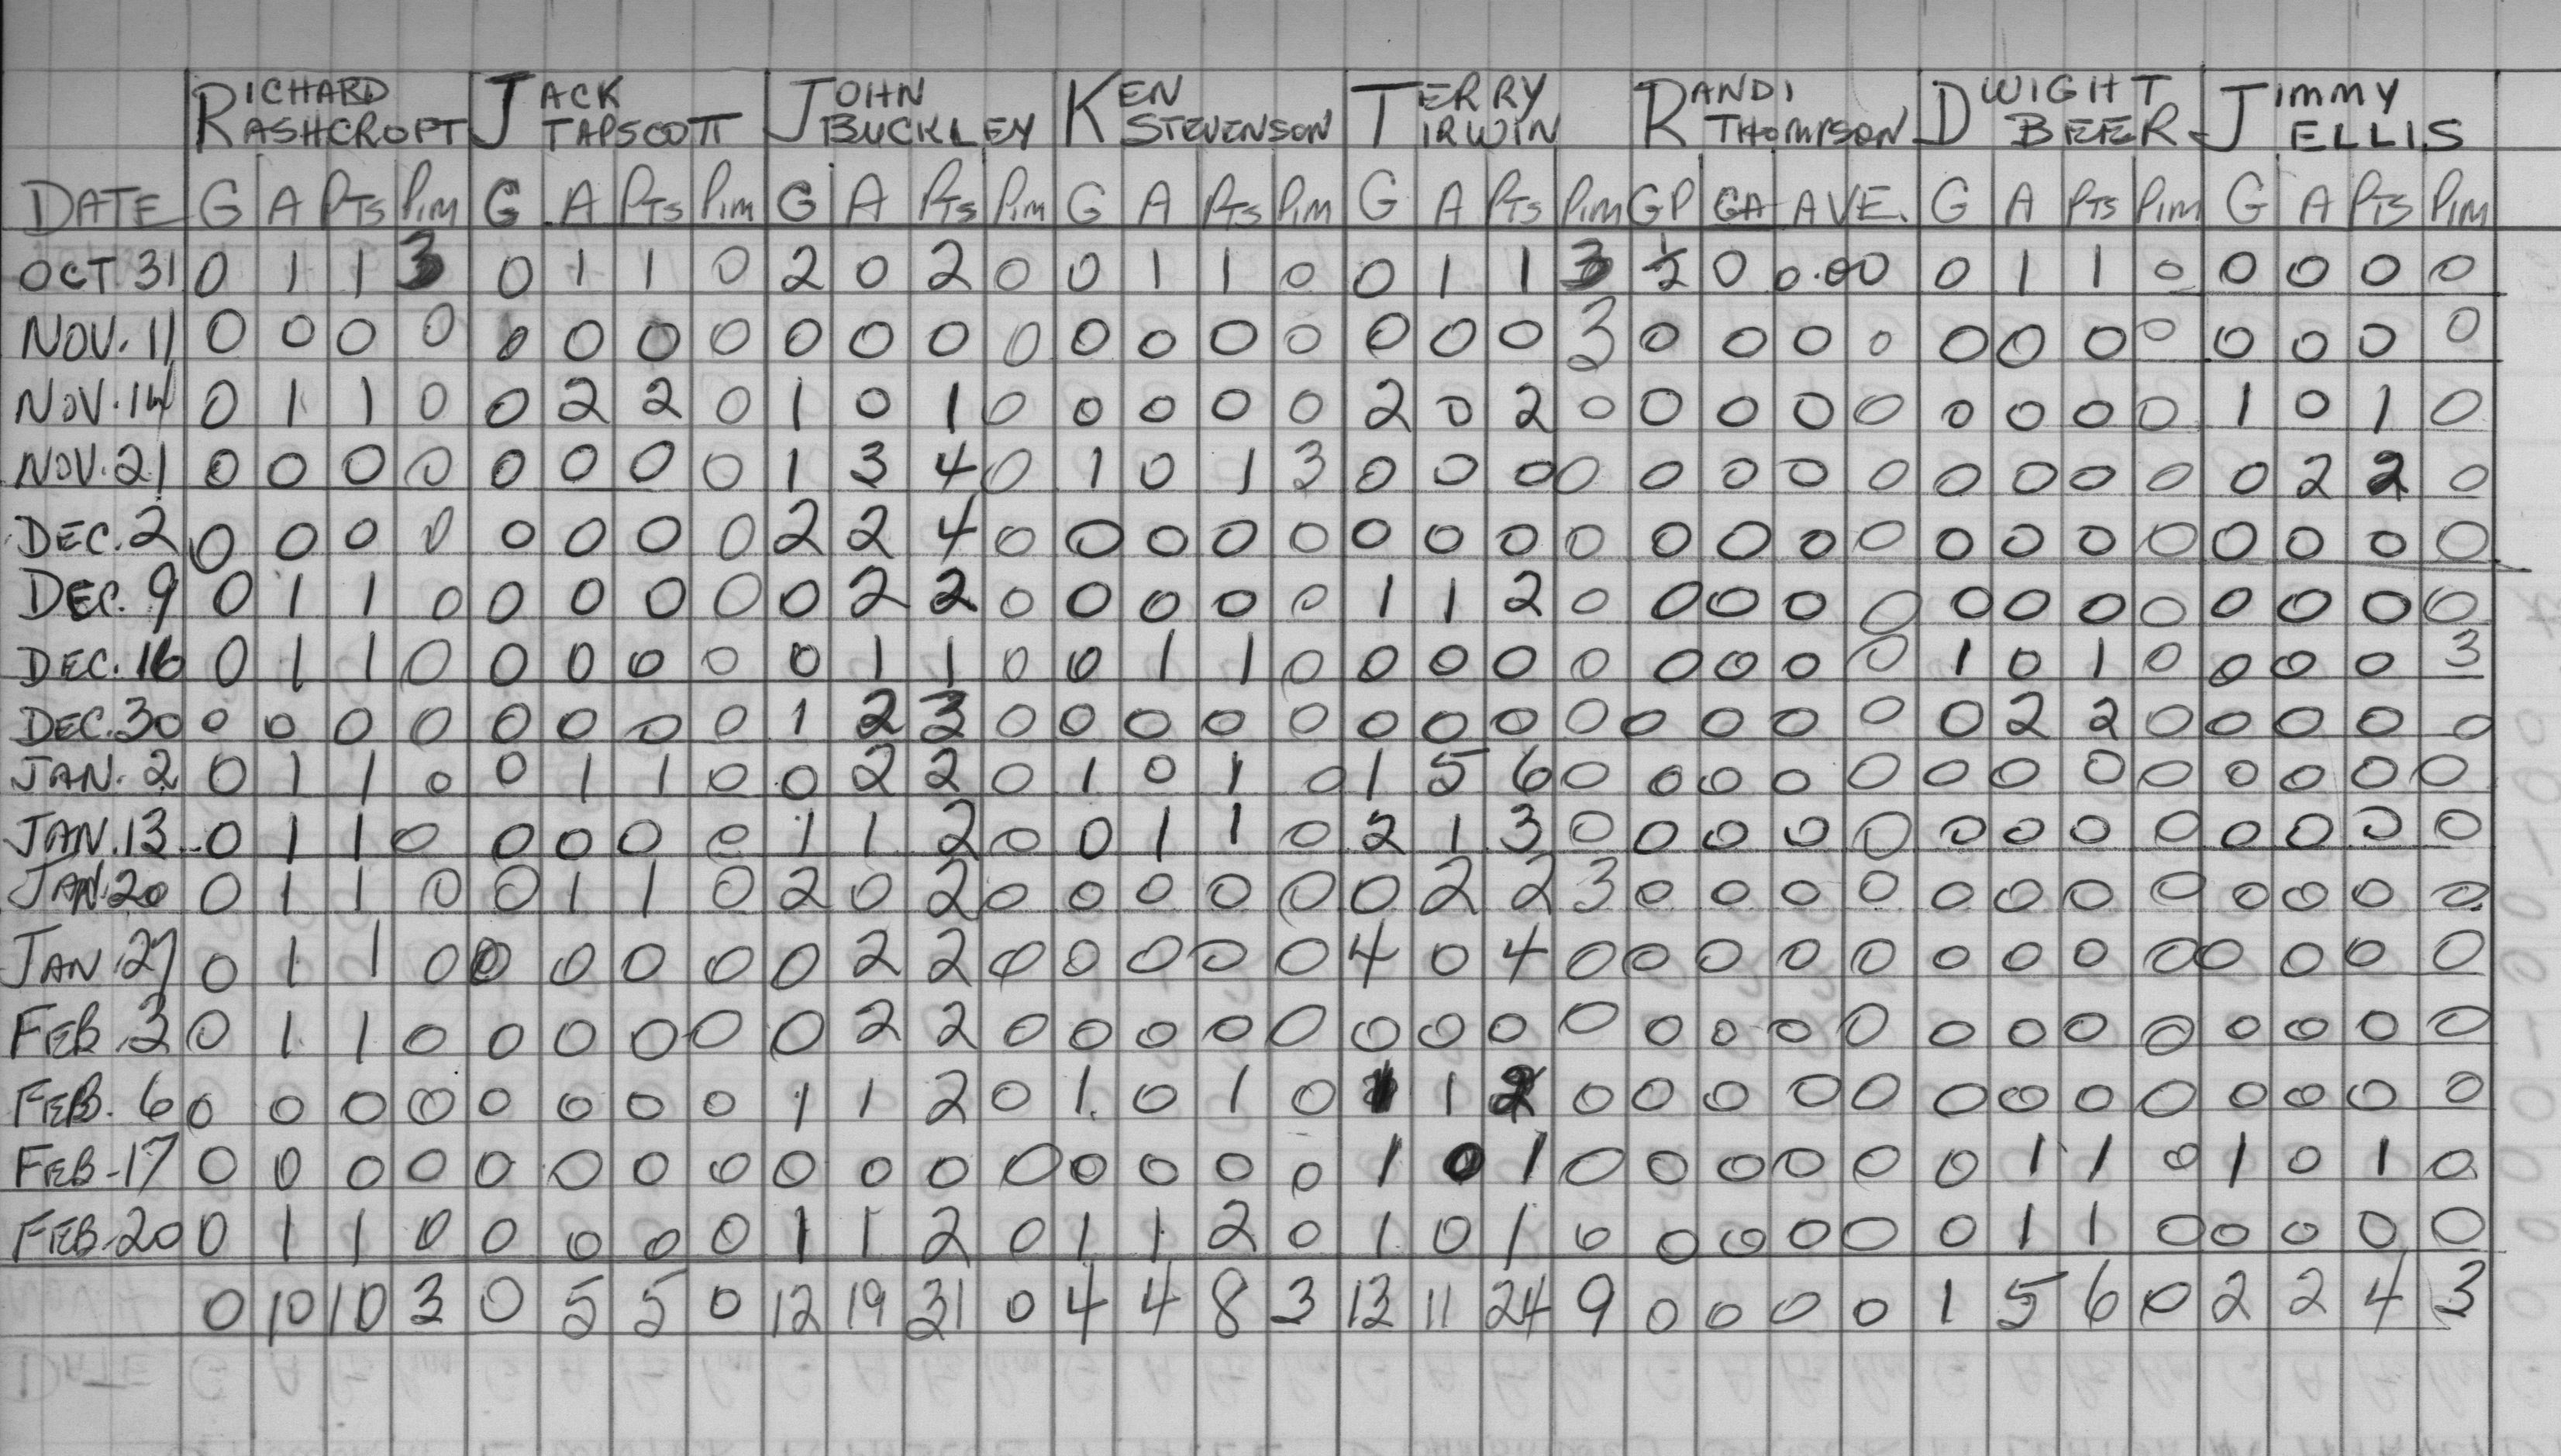 RICHARD RASHCROPT JACK TAPSCOTT JOHN BUCKLEY KEN STEVENSON TERRY IRWIN RANDI THOMPSON DWIGHT BEER JIMMY ELLIS
DATE G A PTS PIM G A PTS PIM G A PTS PIM G A PTS PIM G A PTS PIM GP GA AVE. G A PTS PIM G A PTS PIM
OCT 31 0 1 1 3 0 1 1 0 2 0 2 0 0 1 1 0 0 1 1 3 1/2 0 0.00 0 1 1 0 0 0 0 0
NOV. 11 0 0 0 0 0 0 0 0 0 0 0 0 0 0 0 0 0 0 0 3 0 0 0 0 0 0 0 0 0 0 0 0
NOV. 14 0 1 1 0 0 2 2 0 1 0 1 0 0 0 0 0 2 0 2 0 0 0 0 0 0 0 0 0 1 0 1 0
NOV. 21 0 0 0 0 0 0 0 0 1 3 4 0 1 0 1 3 0 0 0 0 0 0 0 0 0 0 0 0 0 2 2 0
DEC. 2 0 0 0 0 0 0 0 0 2 2 4 0 0 0 0 0 0 0 0 0 0 0 0 0 0 0 0 0 0 0 0 0
DEC. 9 0 1 1 0 0 0 0 0 0 2 2 0 0 0 0 0 1 1 2 0 0 0 0 0 0 0 0 0 0 0 0 0
DEC. 16 0 1 1 0 0 0 0 0 0 1 1 0 0 1 1 0 0 0 0 0 0 0 0 0 1 0 1 0 0 0 0 3
DEC. 30 0 0 0 0 0 0 0 0 1 2 3 0 0 0 0 0 0 0 0 0 0 0 0 0 0 2 2 0 0 0 0 0
JAN. 2 0 1 1 0 0 1 1 0 0 2 2 0 1 0 1 0 1 5 6 0 0 0 0 0 0 0 0 0 0 0 0 0
JAN. 13 0 1 1 0 0 0 0 0 1 1 2 0 0 1 1 0 2 1 3 0 0 0 0 0 0 0 0 0 0 0 0 0
JAN. 20 0 1 1 0 0 1 1 0 2 0 2 0 0 0 0 0 0 2 2 3 0 0 0 0 0 0 0 0 0 0 0 0
JAN. 27 0 1 1 0 0 0 0 0 0 2 2 0 0 0 0 0 4 0 4 0 0 0 0 0 0 0 0 0 0 0 0 0
FEB. 3 0 1 1 0 0 0 0 0 0 2 2 0 0 0 0 0 0 0 0 0 0 0 0 0 0 0 0 0 0 0 0 0
FEB. 6 0 0 0 0 0 0 0 0 1 1 2 0 1 0 1 0 1 1 2 0 0 0 0 0 0 0 0 0 0 0 0 0
FEB. 17 0 0 0 0 0 0 0 0 0 0 0 0 0 0 0 0 1 0 1 0 0 0 0 0 0 1 1 0 1 0 1 0
FEB. 20 0 1 1 0 0 0 0 0 1 1 2 0 1 1 2 0 1 0 1 0 0 0 0 0 0 1 1 0 0 0 0 0
0 10 10 3 0 5 5 0 12 19 31 0 4 4 8 3 13 11 24 9 0 0 0 0 1 5 6 0 2 2 4 3